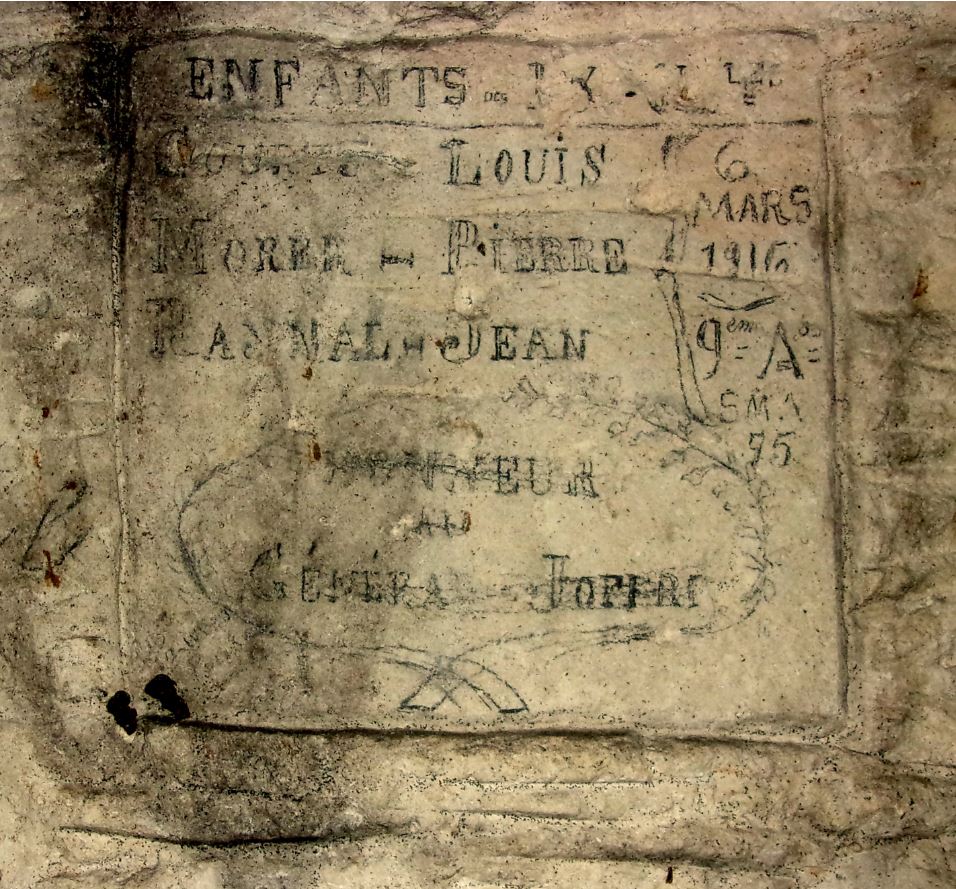 ENFANTS DES
LOUIS
MORER - PIERRE
JEAN
6
MARS
1916
9em Ae
SMA
75
HONNEUR
AU
GÉNÉRAL JOFFRE